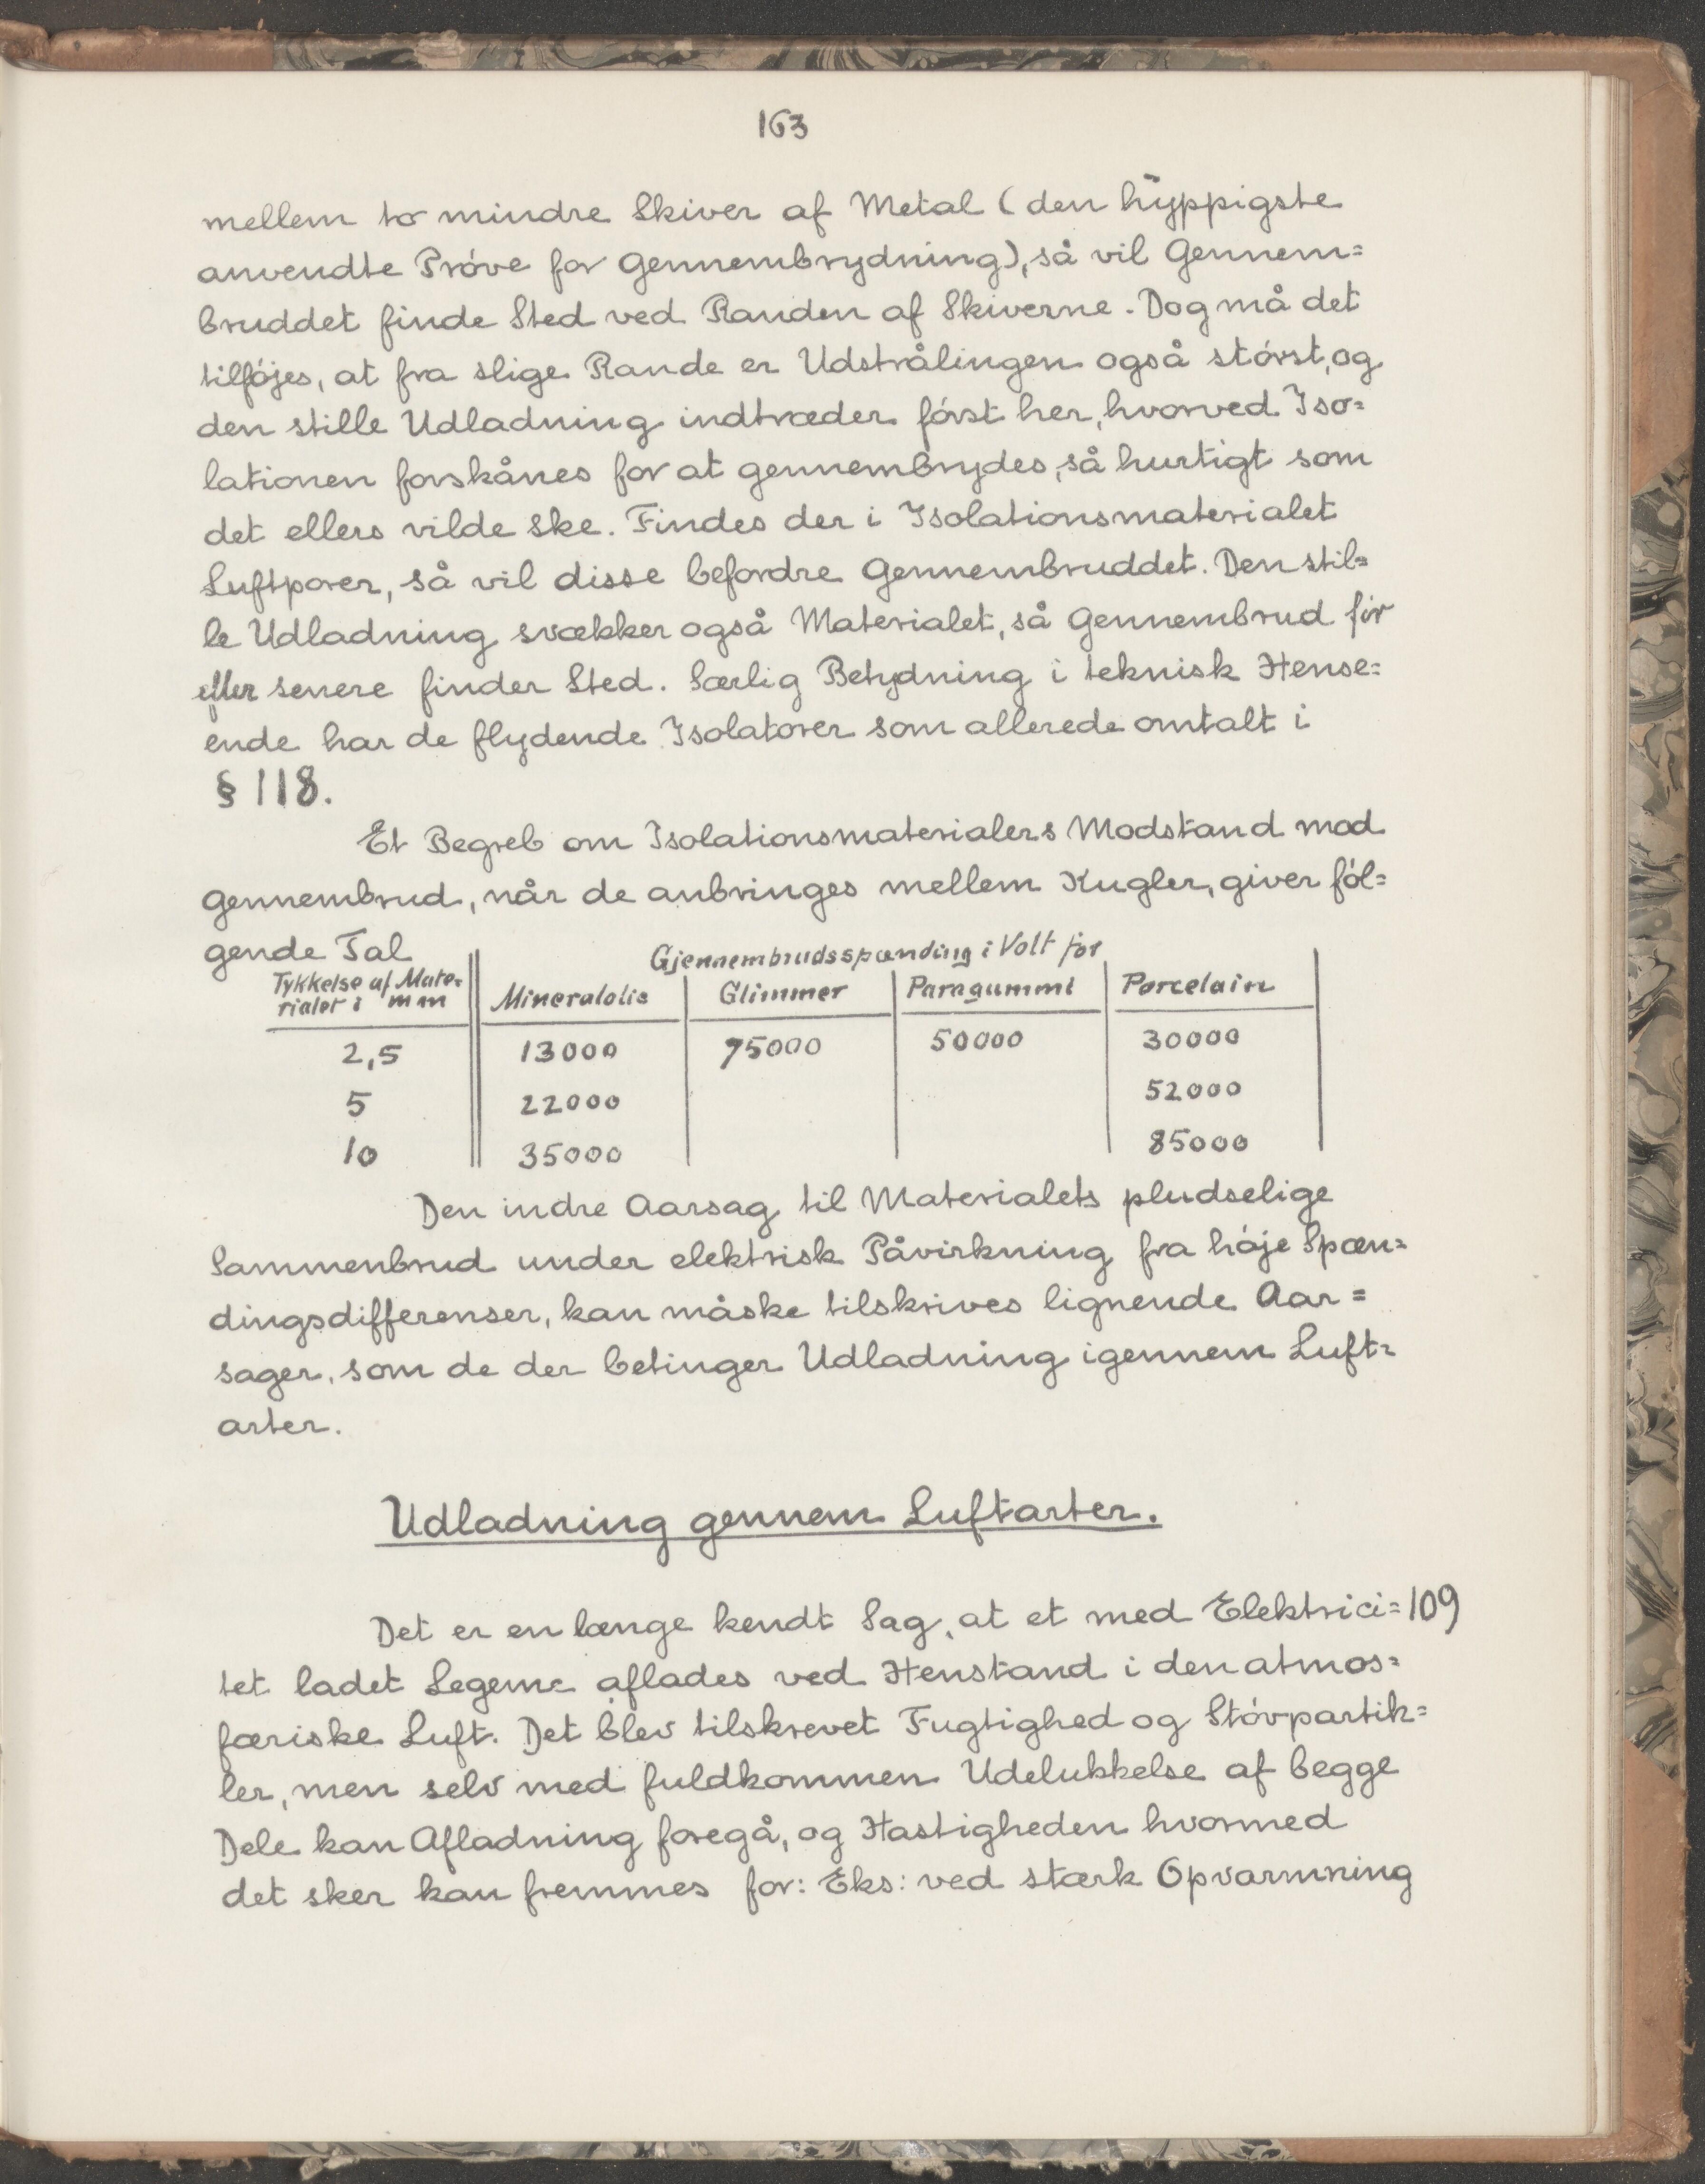 163
mellem to mindre Skiver af Metal (den hyppigste
anvendte Próve for Gennembrydning), så vil Gennem=
bruddet finde Sted ved Randen af Skiverne. Dog må det
tilfójes, at fra slige Rande er Udstrålingen også stórst, og
den stille Udladning indtræder fórst her, hvorved Iso=
lationen forskånes for at gennembrydes, så hurtigt som
det ellers vilde ske. Findes der i Isolationsmaterialet
Luftporer, så vil disse befordre Gennembruddet. Den stil=
le Udladning svækker også Materialet, så Gennembrud fór
eller senere finder Sted. Særlig Betydning i teknisk Hense=
ende har de flydende Isolatorer som allerede omtalt i
§ 118.
Et Begreb om Isolationsmaterialers Modstand mod
Gennembrud, når de anbringes mellem Kugler, giver fól=
gende Tal
Gjennembrudsspænding i Volt for
Tykkelse af Mate=
rialet i mm
Mineralolie Glimmer Paragummi Porcelain
2,5 13000 75000 50000 30000
5 22000 52000
10 35000 85000
Den indre Aarsag til Materialets pludselige
Sammenbrud under elektrisk Påvirkning fra hóje Spæn=
dingsdifferenser, kan måske tilskrives lignende Aar=
sager, som de der betinger Udladning igennem Luft=
arter.
Udladning gennem Luftarter.
Det er en længe kendt Sag, at et med Elektrici= 109
tet ladet Legeme aflades ved Henstand i den atmos=
færiske Luft. Det blev tilskrevet Fugtighed og Stóvpartik=
ler, men selv med fuldkommen Udelukkelse af begge
Dele kan Afladning foregå, og Hastigheden hvormed
det sker kan fremmes for: Eks: ved stærk Opvarmning